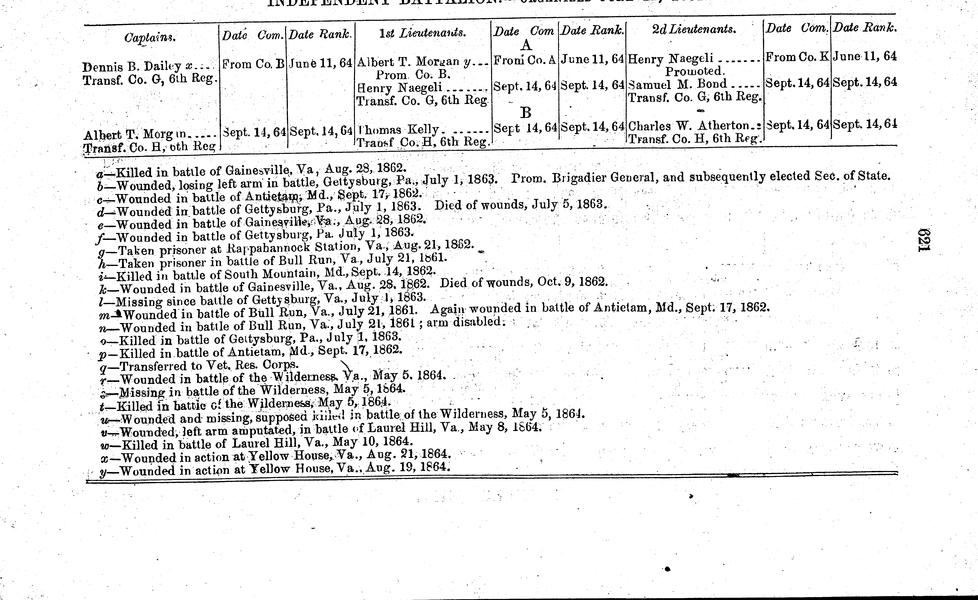 INDEPENDENT BATTALION.
Captains. Date Com. Date Rank. 1st Lieutenants. Date Com Date Rank. 2d Lieutenants. Date Com. Date Rank.
A
Dennis B. Dailey x.... From Co. B June 11, 64 Albert T. Morgan y... From Co. A June 11, 64 Henry Naegeli ....... From Co. K June 11, 64
Transf. Co. G, 6th Reg. Prom. Co. B. Promoted.
Henry Naegeli ....... Sept. 14, 64 Sept. 14, 64 Samuel M. Bond ..... Sept. 14, 64 Sept. 14, 64
Transf. Co. G, 6th Reg. Transf. Co. G, 6th Reg.
B
Albert T. Morgan..... Sept. 14, 64 Sept. 14, 64 Thomas Kelly. ....... Sept 14, 64 Sept. 14, 64 Charles W. Atherton.. Sept. 14, 64 Sept. 14, 64
Transf. Co. H, 6th Reg Transf Co. H, 6th Reg. Transf. Co. H, 6th Reg.
a—Killed in battle of Gainesville, Va, Aug. 28, 1862.
b—Wounded, losing left arm in battle, Gettysburg, Pa., July 1, 1863. Prom. Brigadier General, and subsequently elected Sec. of State.
c—Wounded in battle of Antietam, Md., Sept. 17, 1862.
d—Wounded in battle of Gettysburg, Pa., July 1, 1863. Died of wounds, July 5, 1863.
e—Wounded in battle of Gainesville, Va., Aug. 28, 1862.
f—Wounded in battle of Gettysburg, Pa. July 1, 1863.
g—Taken prisoner at Rappahannock Station, Va., Aug. 21, 1862.
h—Taken prisoner in battle of Bull Run, Va., July 21, 1861.
i—Killed in battle of South Mountain, Md., Sept. 14, 1862.
k—Wounded in battle of Gainesville, Va., Aug. 28, 1862. Died of wounds, Oct. 9, 1862.
l—Missing since battle of Gettysburg, Va., July 1, 1863.
m—Wounded in battle of Bull Run, Va., July 21, 1861. Again wounded in battle of Antietam, Md., Sept. 17, 1862.
n—Wounded in battle of Bull Run, Va., July 21, 1861; arm disabled.
o—Killed in battle of Gettysburg, Pa., July 1, 1863.
p—Killed in battle of Antietam, Md., Sept. 17, 1862.
q—Transferred to Vet. Res. Corps.
r—Wounded in battle of the Wilderness, Va., May 5. 1864.
s—Missing in battle of the Wilderness, May 5, 1864.
t—Killed in battle of the Wilderness, May 5, 1864.
u—Wounded and missing, supposed killed in battle of the Wilderness, May 5, 1864.
v—Wounded, left arm amputated, in battle of Laurel Hill, Va., May 8, 1864.
w—Killed in battle of Laurel Hill, Va., May 10, 1864.
x—Wounded in action at Yellow House, Va., Aug. 21, 1864.
y—Wounded in action at Yellow House, Va., Aug. 19, 1864.
621